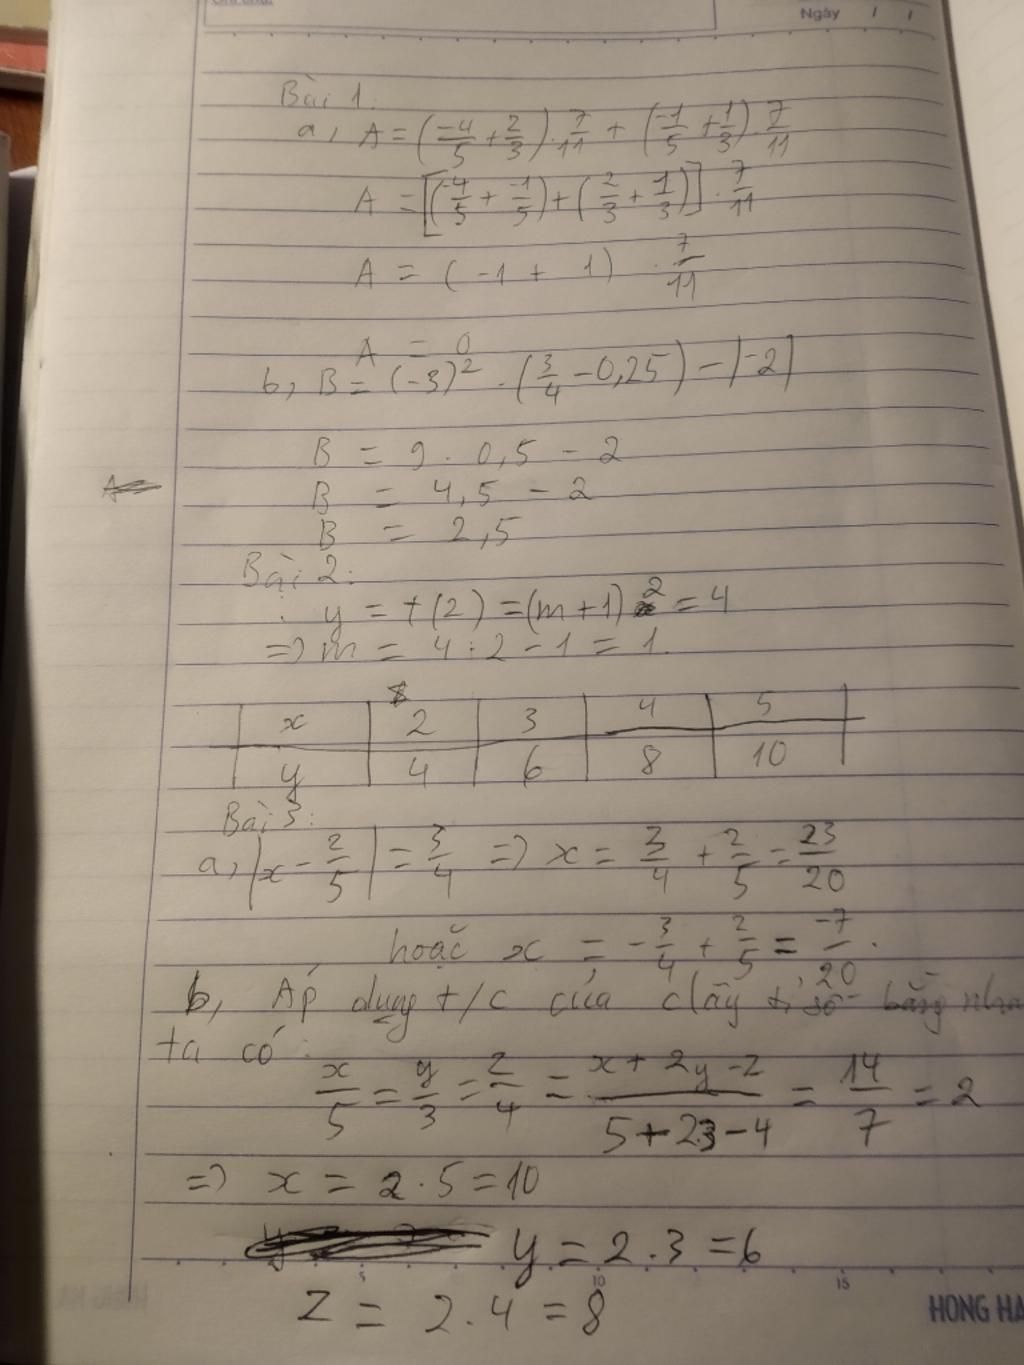 Ngày / /
Bài 1.
a, A = (-4/5 + 2/3) . 7/11 + (-1/5 + 1/3) . 7/11
A = [(-4/5 + -1/5) + (2/3 + 1/3)] . 7/11
A = (-1 + 1) . 7/11
A = 0
b, B = (-3)² . (3/4 - 0,25) - |-2|
B = 9 . 0,5 - 2
B = 4,5 - 2
B = 2,5
Bài 2:
y = f(2) = (m+1) 2 = 4
=> m = 4 : 2 - 1 = 1.
x 2 3 4 5
y 4 6 8 10
Bài 3:
a, |x - 2/5| = 3/4 => x = 3/4 + 2/5 = 23/20
hoặc x = -3/4 + 2/5 = -7/20.
b, Áp dụng t/c của dãy tỉ số bằng nha
ta có:
x/5 = y/3 = z/4 = (x + 2y - z)/(5 + 2.3 - 4) = 14/7 = 2
=> x = 2 . 5 = 10
y = 2 . 3 = 6
z = 2 . 4 = 8
5 10 15
HONG HA